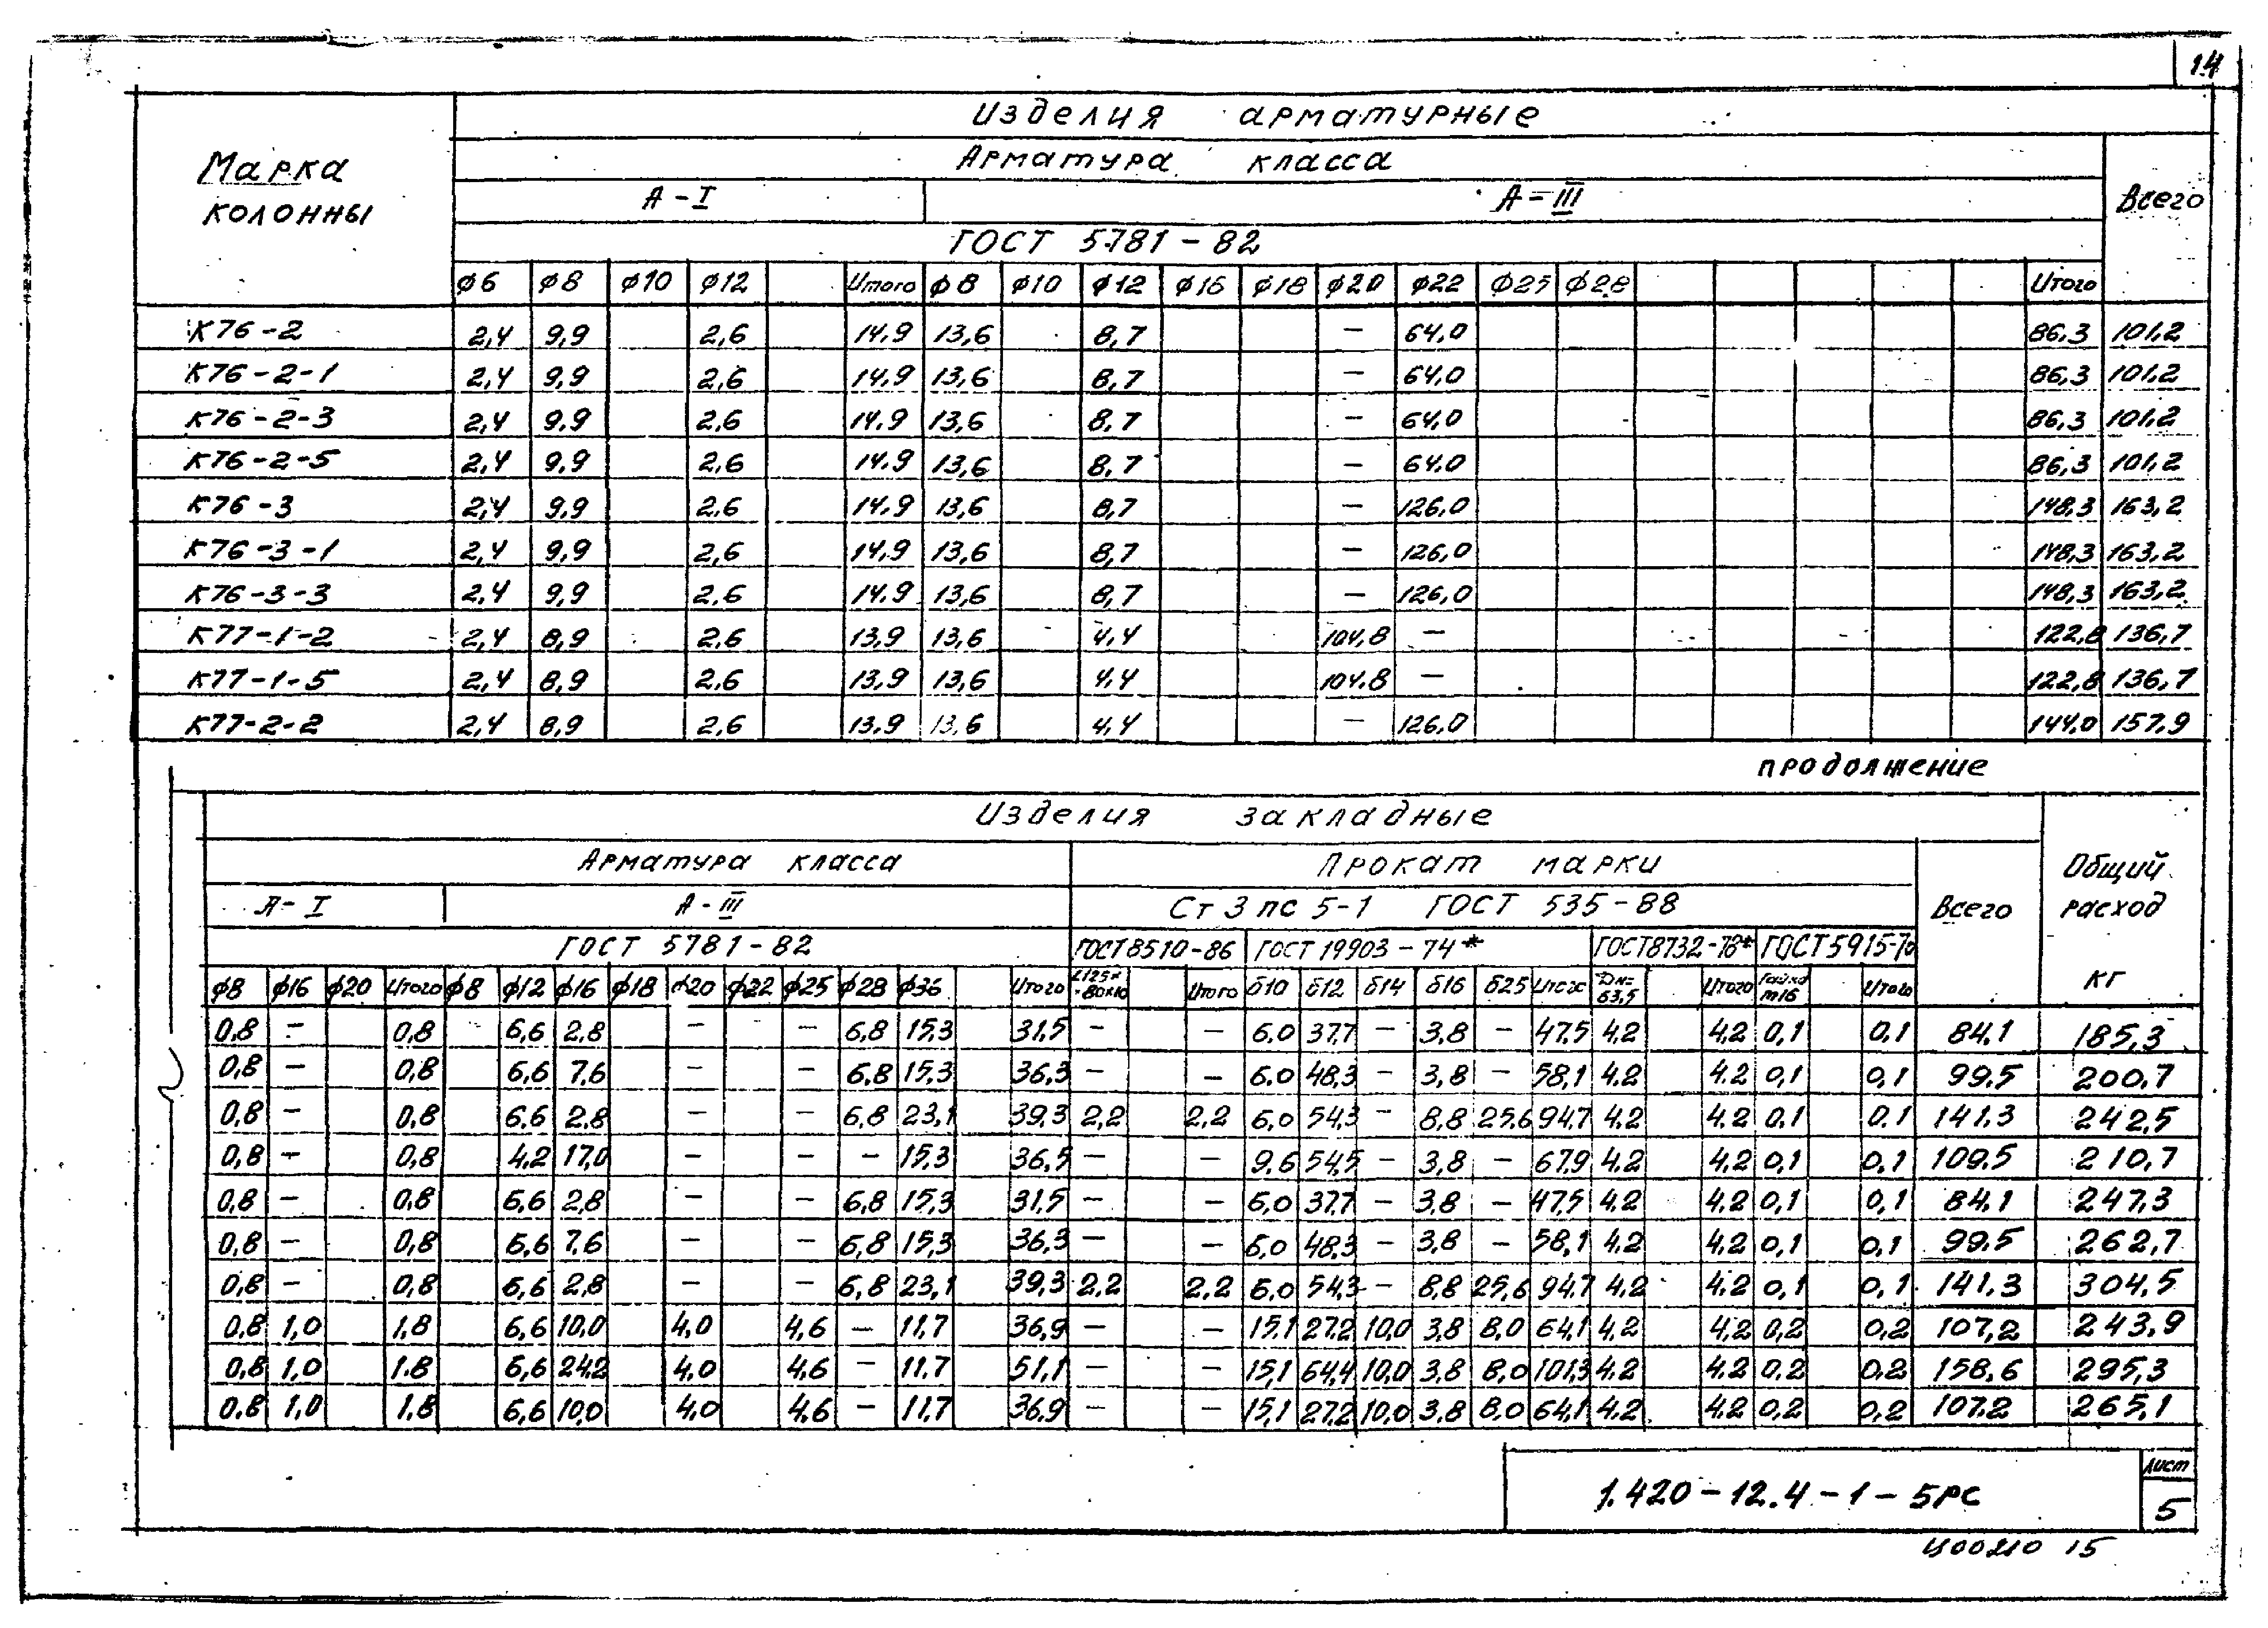 14
Изделия арматурные
Марка колонны
Арматура класса
Всего
А-I А-III
ГОСТ 5781-82
ф6 ф8 ф10 ф12 Итого ф8 ф10 ф12 ф16 ф18 ф20 ф22 ф25 ф28 Итого
К76-2 2,4 9,9 2,6 14,9 13,6 8,7 – 64,0 86,3 101,2
К76-2-1 2,4 9,9 2,6 14,9 13,6 8,7 – 64,0 86,3 101,2
К76-2-3 2,4 9,9 2,6 14,9 13,6 8,7 – 64,0 86,3 101,2
К76-2-5 2,4 9,9 2,6 14,9 13,6 8,7 – 64,0 86,3 101,2
К76-3 2,4 9,9 2,6 14,9 13,6 8,7 – 126,0 148,3 163,2
К76-3-1 2,4 9,9 2,6 14,9 13,6 8,7 – 126,0 148,3 163,2
К76-3-3 2,4 9,9 2,6 14,9 13,6 8,7 – 126,0 148,3 163,2
К77-1-2 2,4 8,9 2,6 13,9 13,6 4,4 104,8 – 122,8 136,7
К77-1-5 2,4 8,9 2,6 13,9 13,6 4,4 104,8 – 122,8 136,7
К77-2-2 2,4 8,9 2,6 13,9 13,6 4,4 – 126,0 144,0 157,9
продолжение
Изделия закладные
Арматура класса Прокат марки
Всего
Общий расход кг
А-I А-III Ст 3 пс 5-1 ГОСТ 535-88
ГОСТ 5781-82 ГОСТ 8510-86 ГОСТ 19903-74* ГОСТ 8732-78* ГОСТ 5915-70
ф8 ф16 ф20 Итого ф8 ф12 ф16 ф18 ф20 ф22 ф25 ф28 ф36 Итого L125× ×80×10 Итого δ10 δ12 δ14 δ16 δ25 Итого Дн= 63,5 Итого Гайка М16 Итого
0,8 – 0,8 6,6 2,8 – – 6,8 15,3 31,5 – – 6,0 37,7 – 3,8 – 47,5 4,2 4,2 0,1 0,1 84,1 185,3
0,8 – 0,8 6,6 7,6 – – 6,8 15,3 36,3 – – 6,0 48,3 – 3,8 – 58,1 4,2 4,2 0,1 0,1 99,5 200,7
0,8 – 0,8 6,6 2,8 – – 6,8 23,1 39,3 2,2 2,2 6,0 54,3 – 8,8 25,6 94,7 4,2 4,2 0,1 0,1 141,3 242,5
0,8 – 0,8 4,2 17,0 – – – 15,3 36,5 – – 9,6 54,5 – 3,8 – 67,9 4,2 4,2 0,1 0,1 109,5 210,7
0,8 – 0,8 6,6 2,8 – – 6,8 15,3 31,5 – – 6,0 37,7 – 3,8 – 47,5 4,2 4,2 0,1 0,1 84,1 247,3
0,8 – 0,8 6,6 7,6 – – 6,8 15,3 36,3 – – 6,0 48,3 – 3,8 – 58,1 4,2 4,2 0,1 0,1 99,5 262,7
0,8 – 0,8 6,6 2,8 – – 6,8 23,1 39,3 2,2 2,2 6,0 54,3 – 8,8 25,6 94,7 4,2 4,2 0,1 0,1 141,3 304,5
0,8 1,0 1,8 6,6 10,0 4,0 4,6 – 11,7 36,9 – – 15,1 27,2 10,0 3,8 8,0 64,1 4,2 4,2 0,2 0,2 107,2 243,9
0,8 1,0 1,8 6,6 24,2 4,0 4,6 – 11,7 51,1 – – 15,1 64,4 10,0 3,8 8,0 101,3 4,2 4,2 0,2 0,2 158,6 295,3
0,8 1,0 1,8 6,6 10,0 4,0 4,6 – 11,7 36,9 – – 15,1 27,2 10,0 3,8 8,0 64,1 4,2 4,2 0,2 0,2 107,2 265,1
1.420-12.4-1-5РС
Лист
5
Ц00210 15